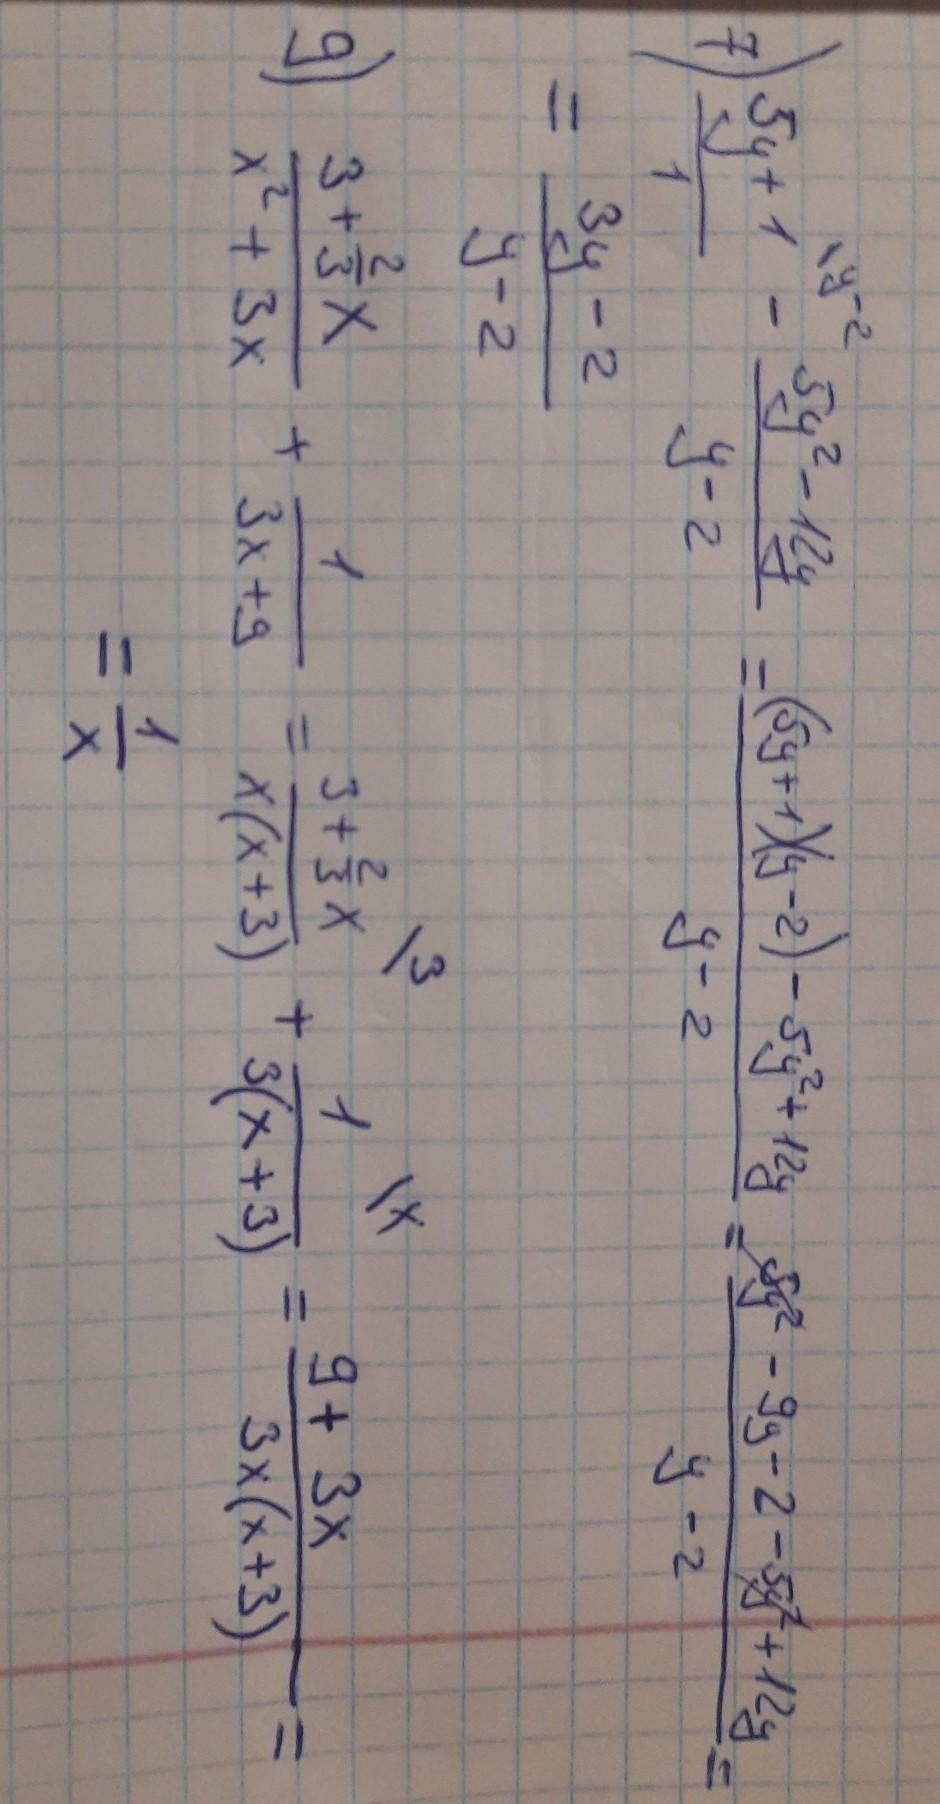 7) (5y + 1)/1 \y-2 - (5y² - 12y)/(y - 2) = ((5y + 1)(y - 2) - 5y² + 12y)/(y - 2) = (5y² - 9y - 2 - 5y² + 12y)/(y - 2) =
= (3y - 2)/(y - 2)
9) (3 + 2/3 x)/(x² + 3x) + 1/(3x + 9) = (3 + 2/3 x)/(x(x + 3)) \3 + 1/(3(x + 3)) \x = (9 + 3x)/(3x(x + 3)) =
= 1/x